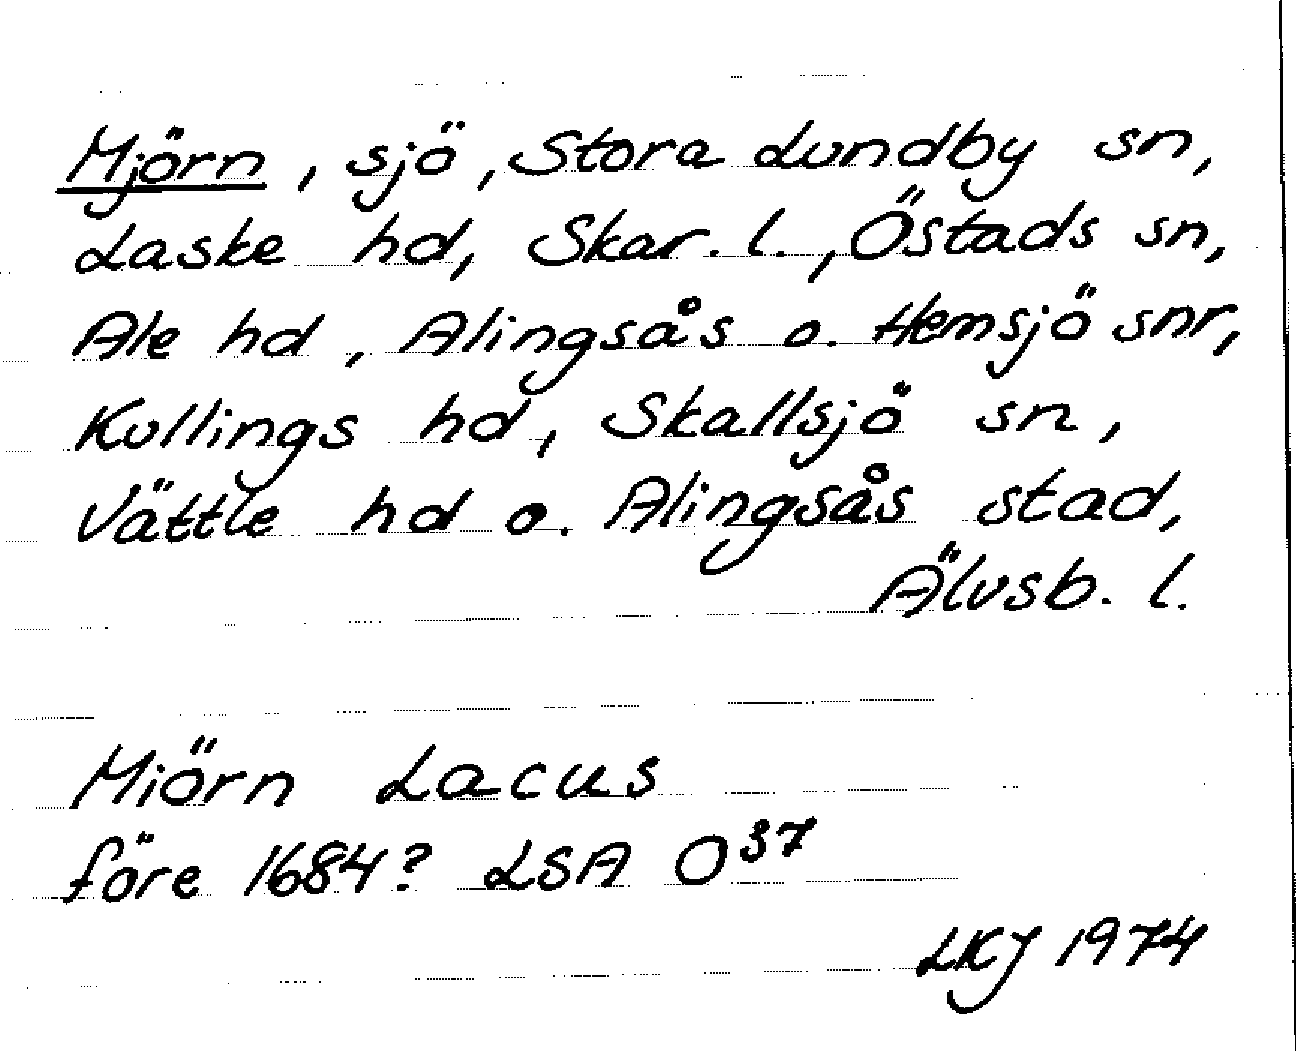 Mjörn, sjö, Stora Lundby sn,
Laske hd, Skar. l., Östads sn,
Ale hd, Alingsås o. Hemsjö snr,
Kullings hd, Skallsjö sn,
Vättle hd o. Alingsås stad,
Älvsb. l.
Miörn Lacus
före 1684? LSA O³⁷
LKJ 1974